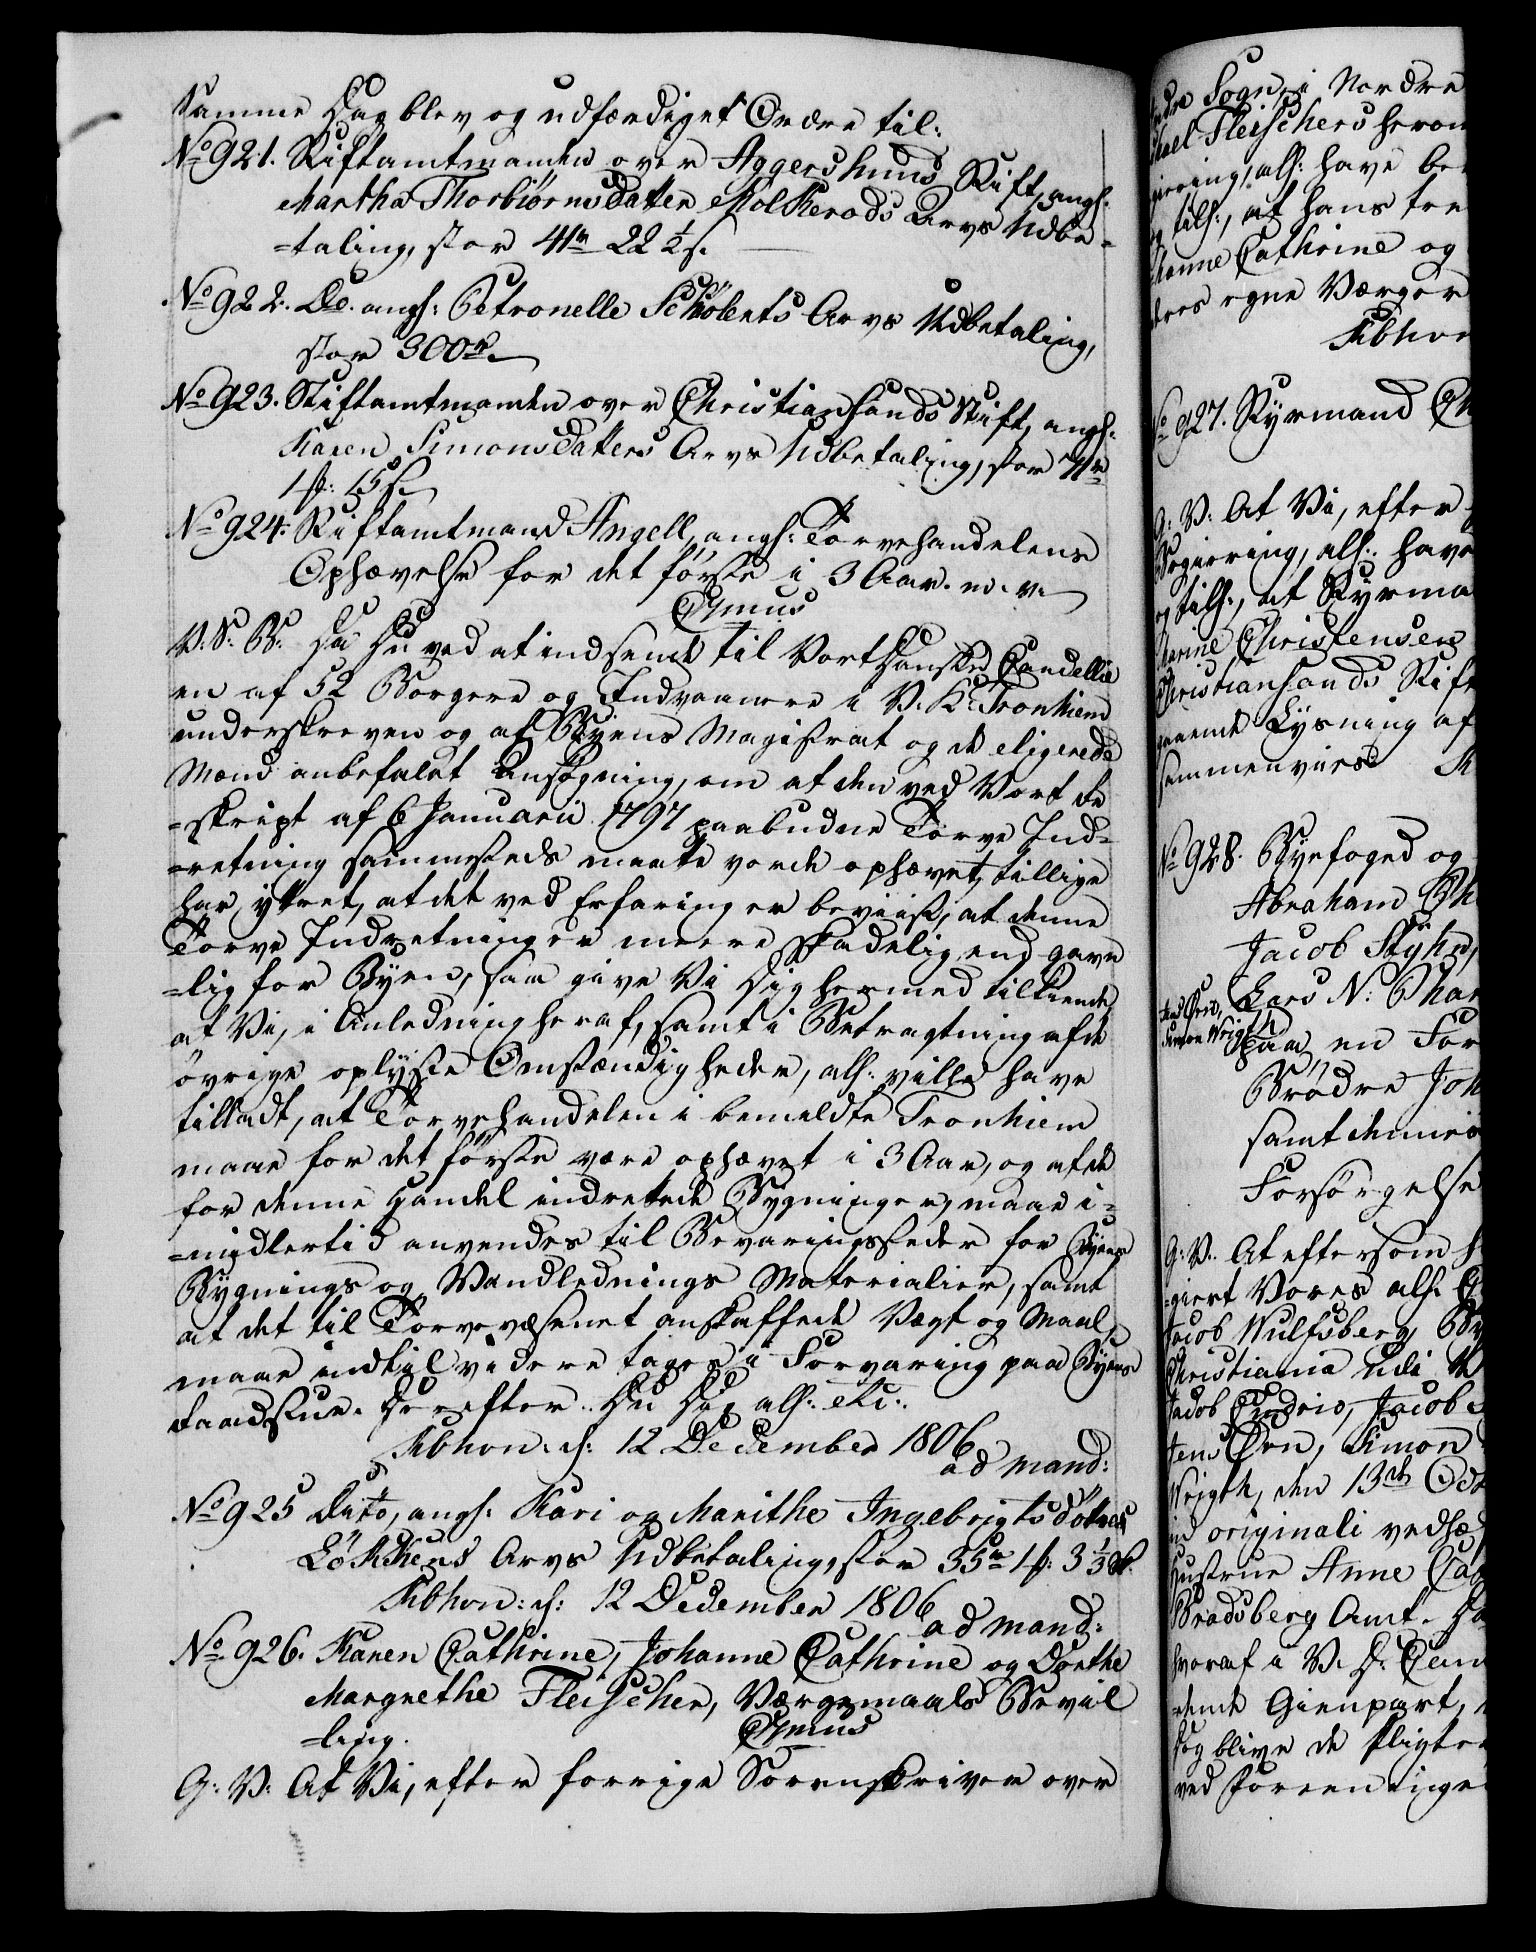 Samme Dag blev og udfærdiget Ordre til:
No 921. Stiftamtmanden over Aggershuus Stift, angs:
Martha Thorbiørnsdatter Molkerøds Arvs Udbe-
-taling, stor 41rd 22 ½ s.
No 922. Do. angs: Petronelle Schöberts Arvs Udbetaling,
stor 300rd
No 923. Stiftamtmanden over Christiansands Stift, angs:
Karen Simonsdatters Arvs Udbetaling, stor 71rd
1 ß: 15 s.
No 924. Stiftamtmand Angell, angs: Torvehandelens
Ophævelse for det første i 3 Aar. m. v.
Cgmus
V. S. B. Da Du ved at indsende til Vort Danske Cancellie
en af 52 Borgere og Indvaanere i V. K. Tronhiem
underskreven og af Byens Magistrat og de eligerede
Mænd anbefalet Ansøgning, om at den ved Vort Re
-skript af 6 Januarii 1797 paabudne Torve Ind-
-retning sammesteds maatte vorde ophævet, tillige
har yttret, at det ved Erfaring er beviist, at denne
Torve Indretning er meere skadelig end gavn
-lig for Byen, saa give Vi Dig hermed tilkiende,
at Vi, i Anledning heraf, samt i Betragtning af de
øvrige oplyste Omstændigheder, alln: ville have
tilladt, at Torvehandelen i bemeldte Tronhiem
maae for det første være ophævet i 3 Aar, og at de
for denne Handel indrettede Bygninger, maae i-
-midlertid anvendes til Bevaringssteder for Byens
Bygnings og Vandlednings Materialier, samt
at det til Torvevæsenet anskaffede Vægt og Maal,
maae indtil videre tages i Forvaring paa Byens
Raadstue. Derefter Du Dig alln: etc:
Kbhvn: d: 12 December 1806
ad mand:
No 925 Dito, angs: Kari og Marithe Ingebrigtsdötres
Lökkens Arvs Udbetaling, stor 35rd 1 ß: 3 ⅓ s.
Kbhvn: d: 12 December 1806
ad mand:
No 926. Karen Cathrine, Johanne Cathrine og Dorthe
Margrethe Fleischer, Værgemaals Bevil
-ling. Cgmus
G: V: At Vi, efter forrige Sorenskriver over
Sogne i Nordre
Fleischers heron
alln: have be
tills:, at hans tre
Cathrine og
deres egne Værger
Kbhvn
No 927. Styrmand Ch
G: V: At Vi, efter
Regiering, alln: have
og tills:, at Styrma
Marine Christensen
Christiansands Stift
Lysning af
sammenvies K
No 928. Byefoged og
Abraham Ch
Jacob Styhr,
Lars N: Char
Jens Örn,
Simon Wrigth
paa en For
Brödre Joh
samt
Forsörgelse
G: V: At eftersom
-giert Vores alln:
Jacob Wulfsberg, By
Christiania udi
Jacob Jacob
Jens Örn, Simon
Wrigth, den 13de Oct
in originali vedhæ
Hustrue Anne Ca
Bradsberg Amt. Da
hvoraf i V. D. Can
-dende Gienpart,
og blive de pligte
ved Foreeninge